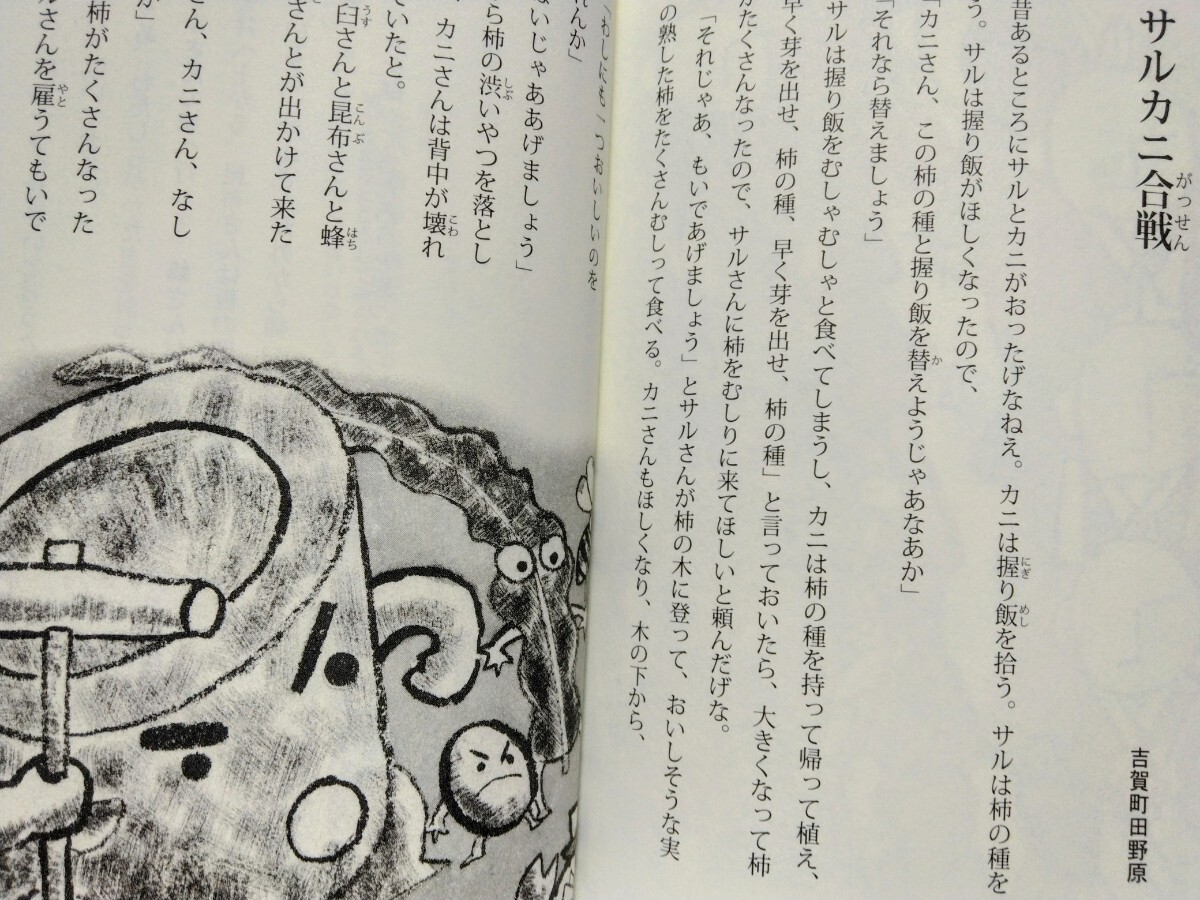 サルカニ合戦
がっせん
吉賀町田野原
昔あるところにサルとカニがおったげなねえ。カニは握り飯を拾う。サルは柿の種を
にぎ めし
う。サルは握り飯がほしくなったので、
「カニさん、この柿の種と握り飯を替えようじゃあなあか」
か
「それなら替えましょう」
サルは握り飯をむしゃむしゃと食べてしまうし、カニは柿の種を持って帰って植え、
早く芽を出せ、柿の種、早く芽を出せ、柿の種」と言っておいたら、大きくなって柿
がたくさんなったので、サルさんに柿をむしりに来てほしいと頼んだげな。
「それじゃあ、もいであげましょう」とサルさんが柿の木に登って、おいしそうな実
の熟した柿をたくさんむしって食べる。カニさんもほしくなり、木の下から、
「わしにも一つおいしいのを
れんか」
ないじゃああげましょう」
ら柿の渋いやつを落とし
しぶ
カニさんは背中が壊れ
こわ
ていたと。
臼さんと昆布さんと蜂
うす こんぶ はち
さんとが出かけて来た
さん、カニさん、なし
か」
柿がたくさんなった
ルさんを雇うてもいで
やと